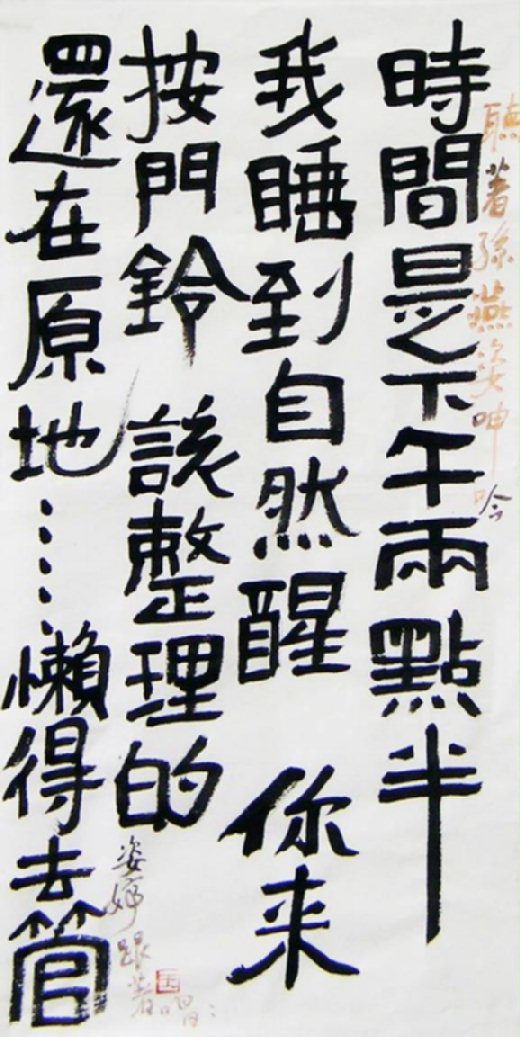 聽著孫燕姿呻吟
時間是下午兩點半
我睡到自然醒 你来
按門鈴 該整理的
還在原地……懶得去管
姿婷跟著唱：